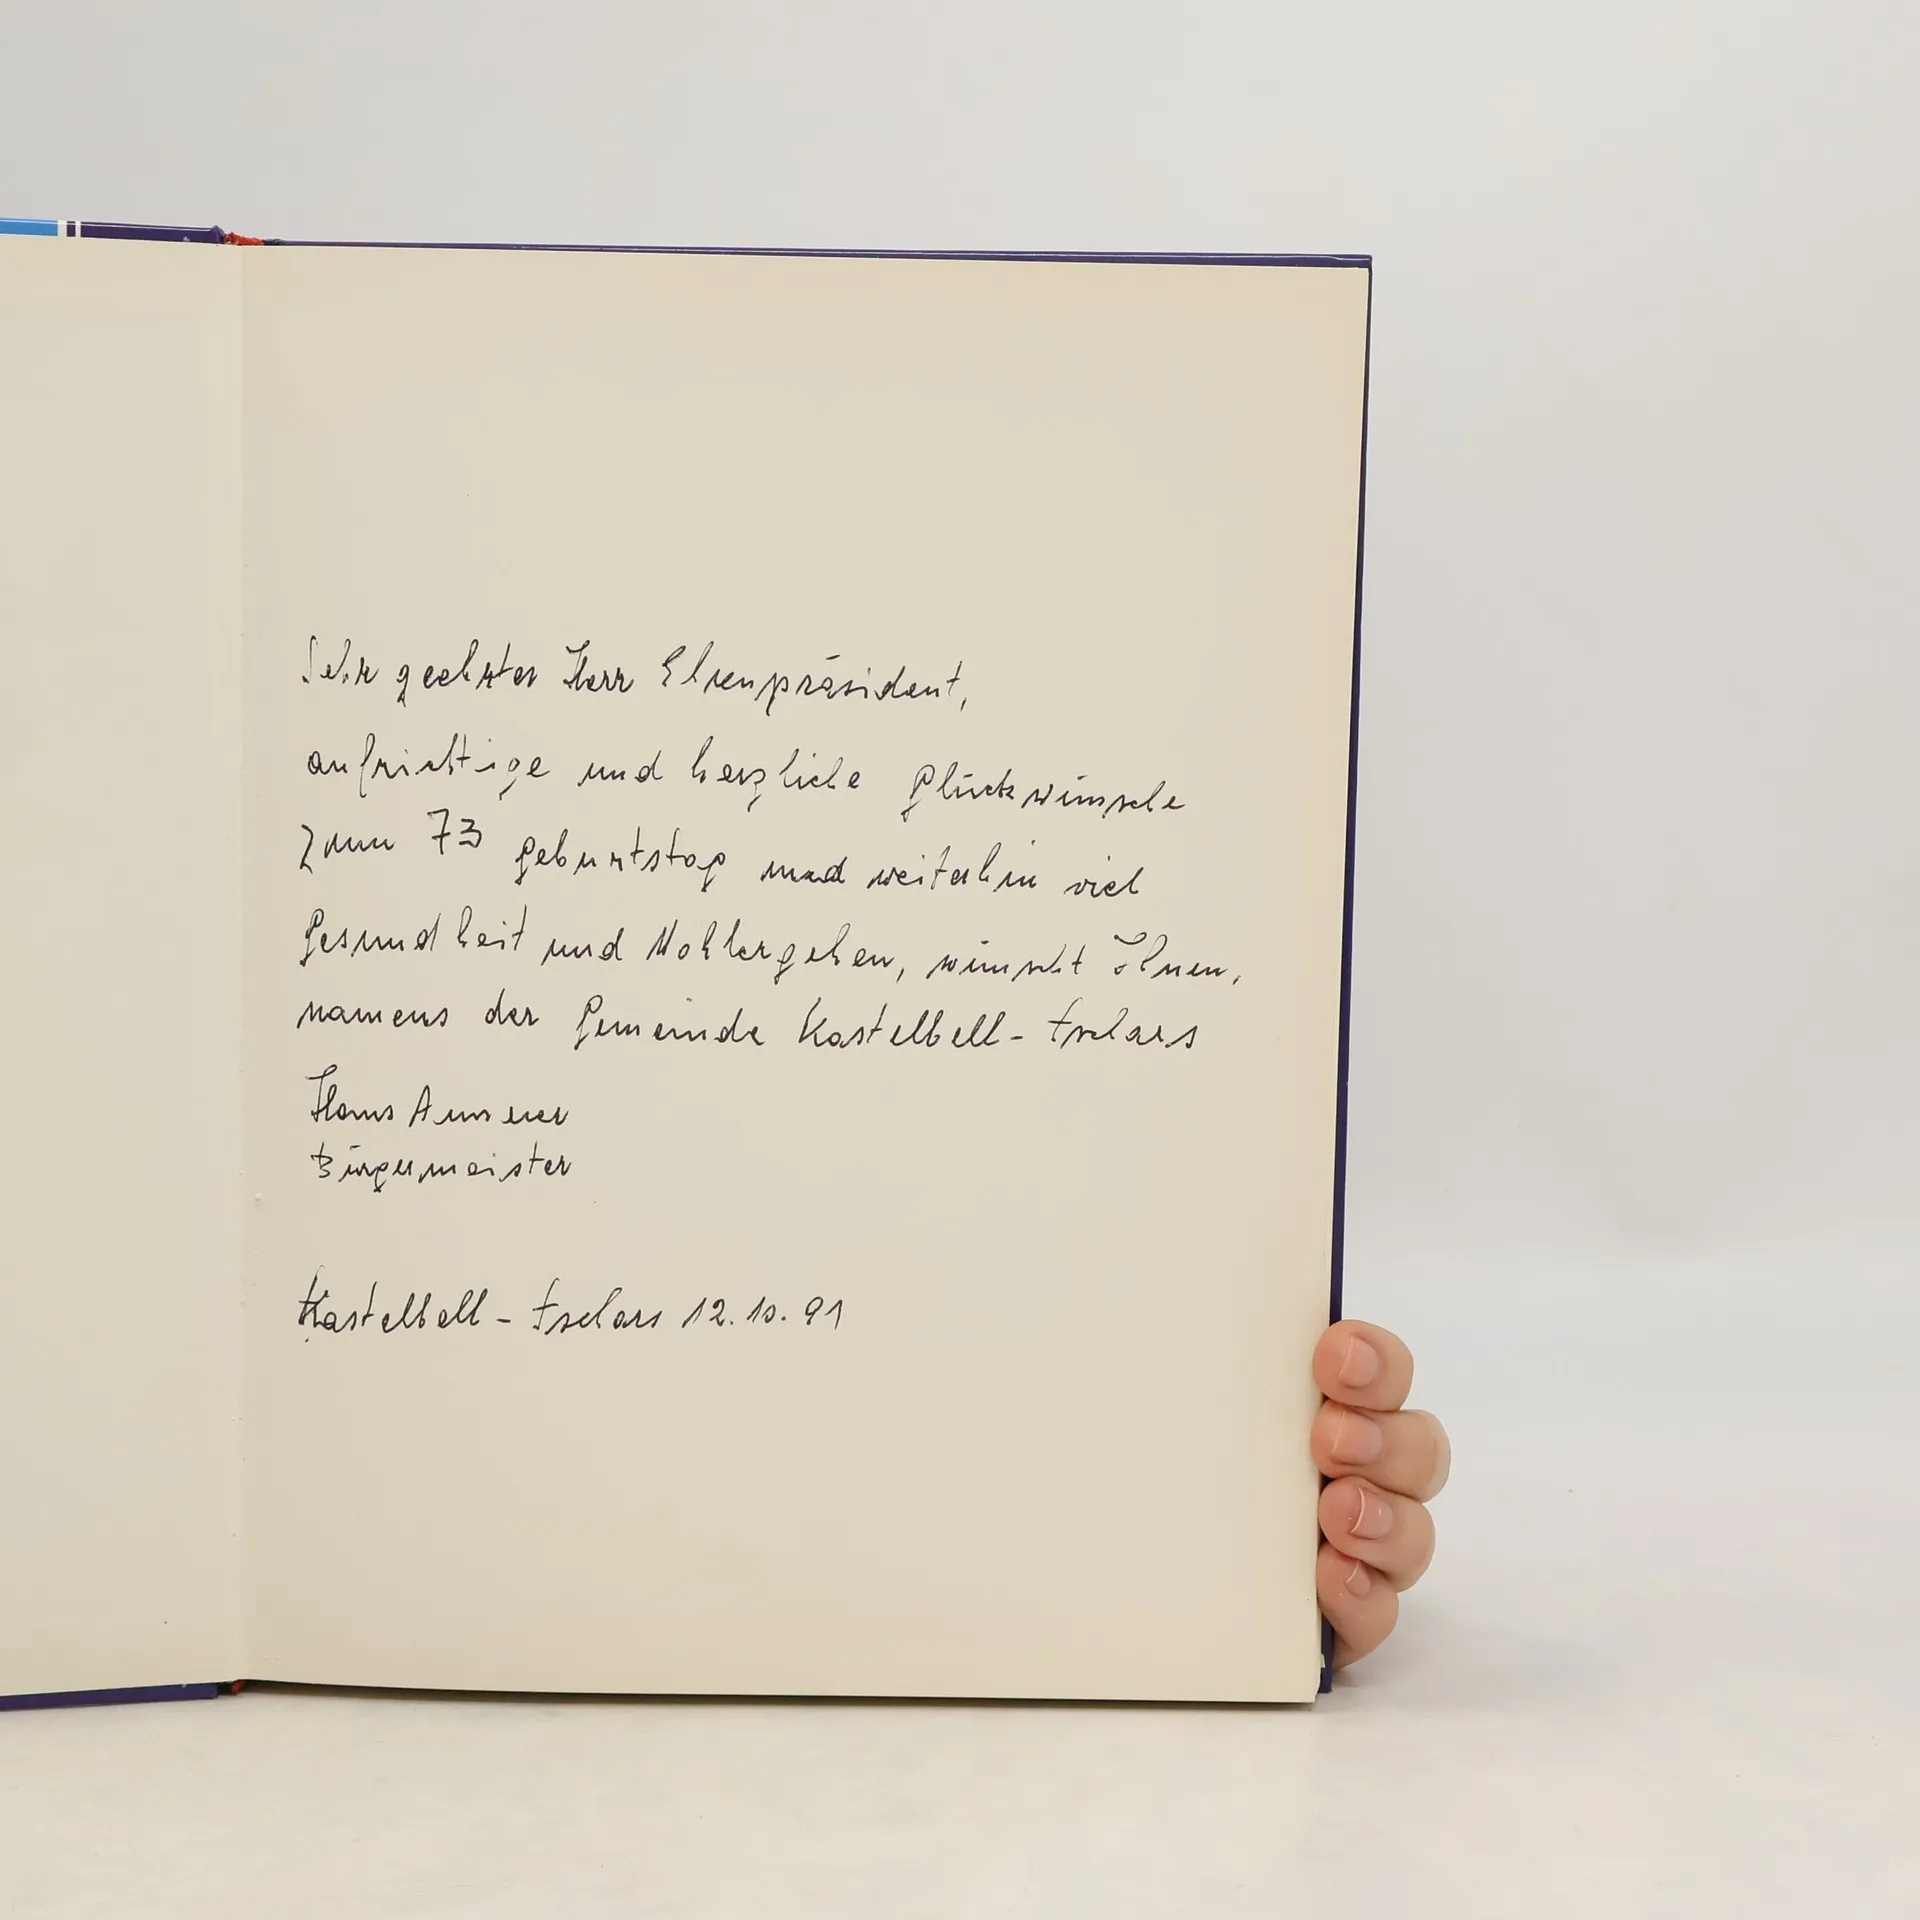 Sehr geehrter Herr Ehrenpräsident,
aufrichtige und herzliche Glückwünsche
zum 73 Geburtstag und weiterhin viel
Gesundheit und Wohlergehen, wünscht Ihnen,
namens der Gemeinde Kastelbell-Tschars
Hans
Bürgermeister
Kastelbell-Tschars 12.10.91